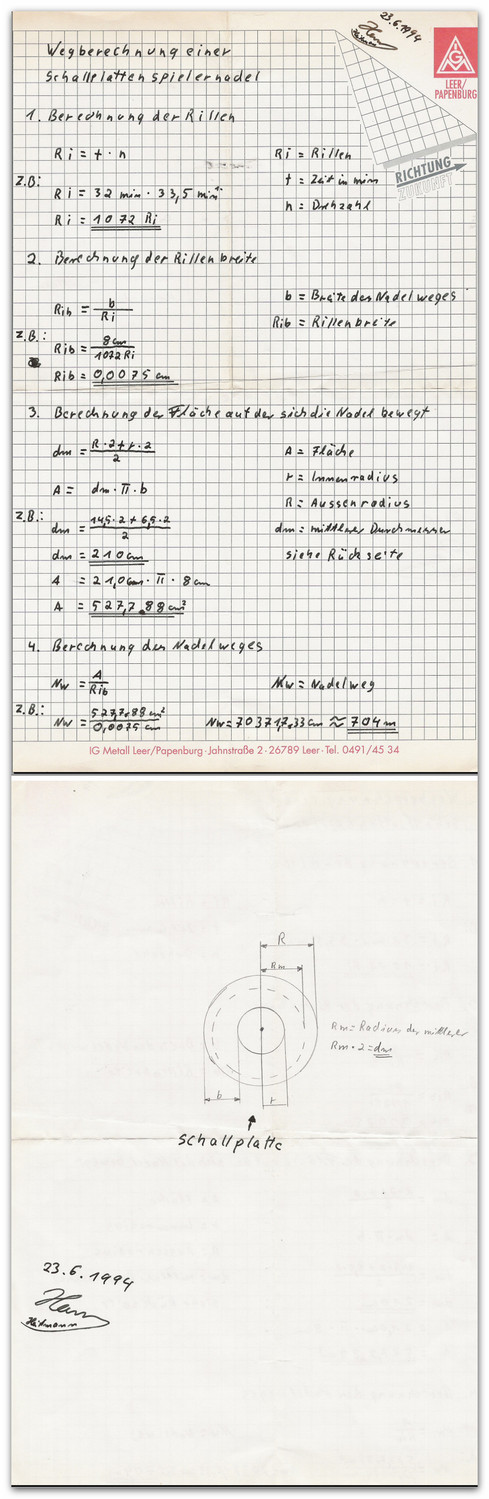 23.6.1994
IGM
LEER/
PAPENBURG
RICHTUNG
ZUKUNFT
Wegberechnung einer
Schallplattenspielernadel
1. Berechnung der Rillen
Ri = t · n
Ri = Rillen
t = Zeit in min
n = Drehzahl
Z.B:
Ri = 32 min · 33,5 min⁻¹
Ri = 1072 Ri
2. Berechnung der Rillenbreite
Rib = b / Ri
b = Breite des Nadelweges
Rib = Rillenbreite
Z.B.:
Rib = 8cm / 1072Ri
Rib = 0,0075 cm
3. Berechnung der Fläche auf der sich die Nadel bewegt
dm = R · 2 + r · 2 / 2
A = dm · π · b
A = Fläche
r = Innenradius
R = Aussenradius
dm = mittlerer Durchmesser
siehe Rückseite
Z.B.:
dm = 14,5 · 2 + 6,5 · 2 / 2
dm = 210cm
A = 21,0cm · π · 8cm
A = 527,7.88 cm²
4. Berechnung des Nadelweges
Nw = A / Rib
Nw = Nadelweg
Z.B.:
Nw = 527,7.88 cm² / 0,0075 cm
Nw = 70371,7.33 cm ≈ 704 m
IG Metall Leer/Papenburg · Jahnstraße 2 · 26789 Leer · Tel. 0491/45 34
R
Rm
Rm = Radius der mittlerer
Rm · 2 = dm
b
r
Schallplatte
23.6.1994